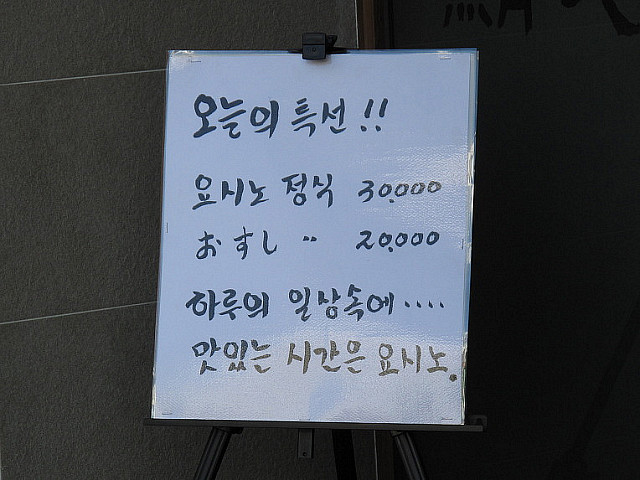 오늘의 특선!!
요시노 정식 30,000
おすし 〃 20,000
하루의 일상속에....
맛있는 시간은 요시노.